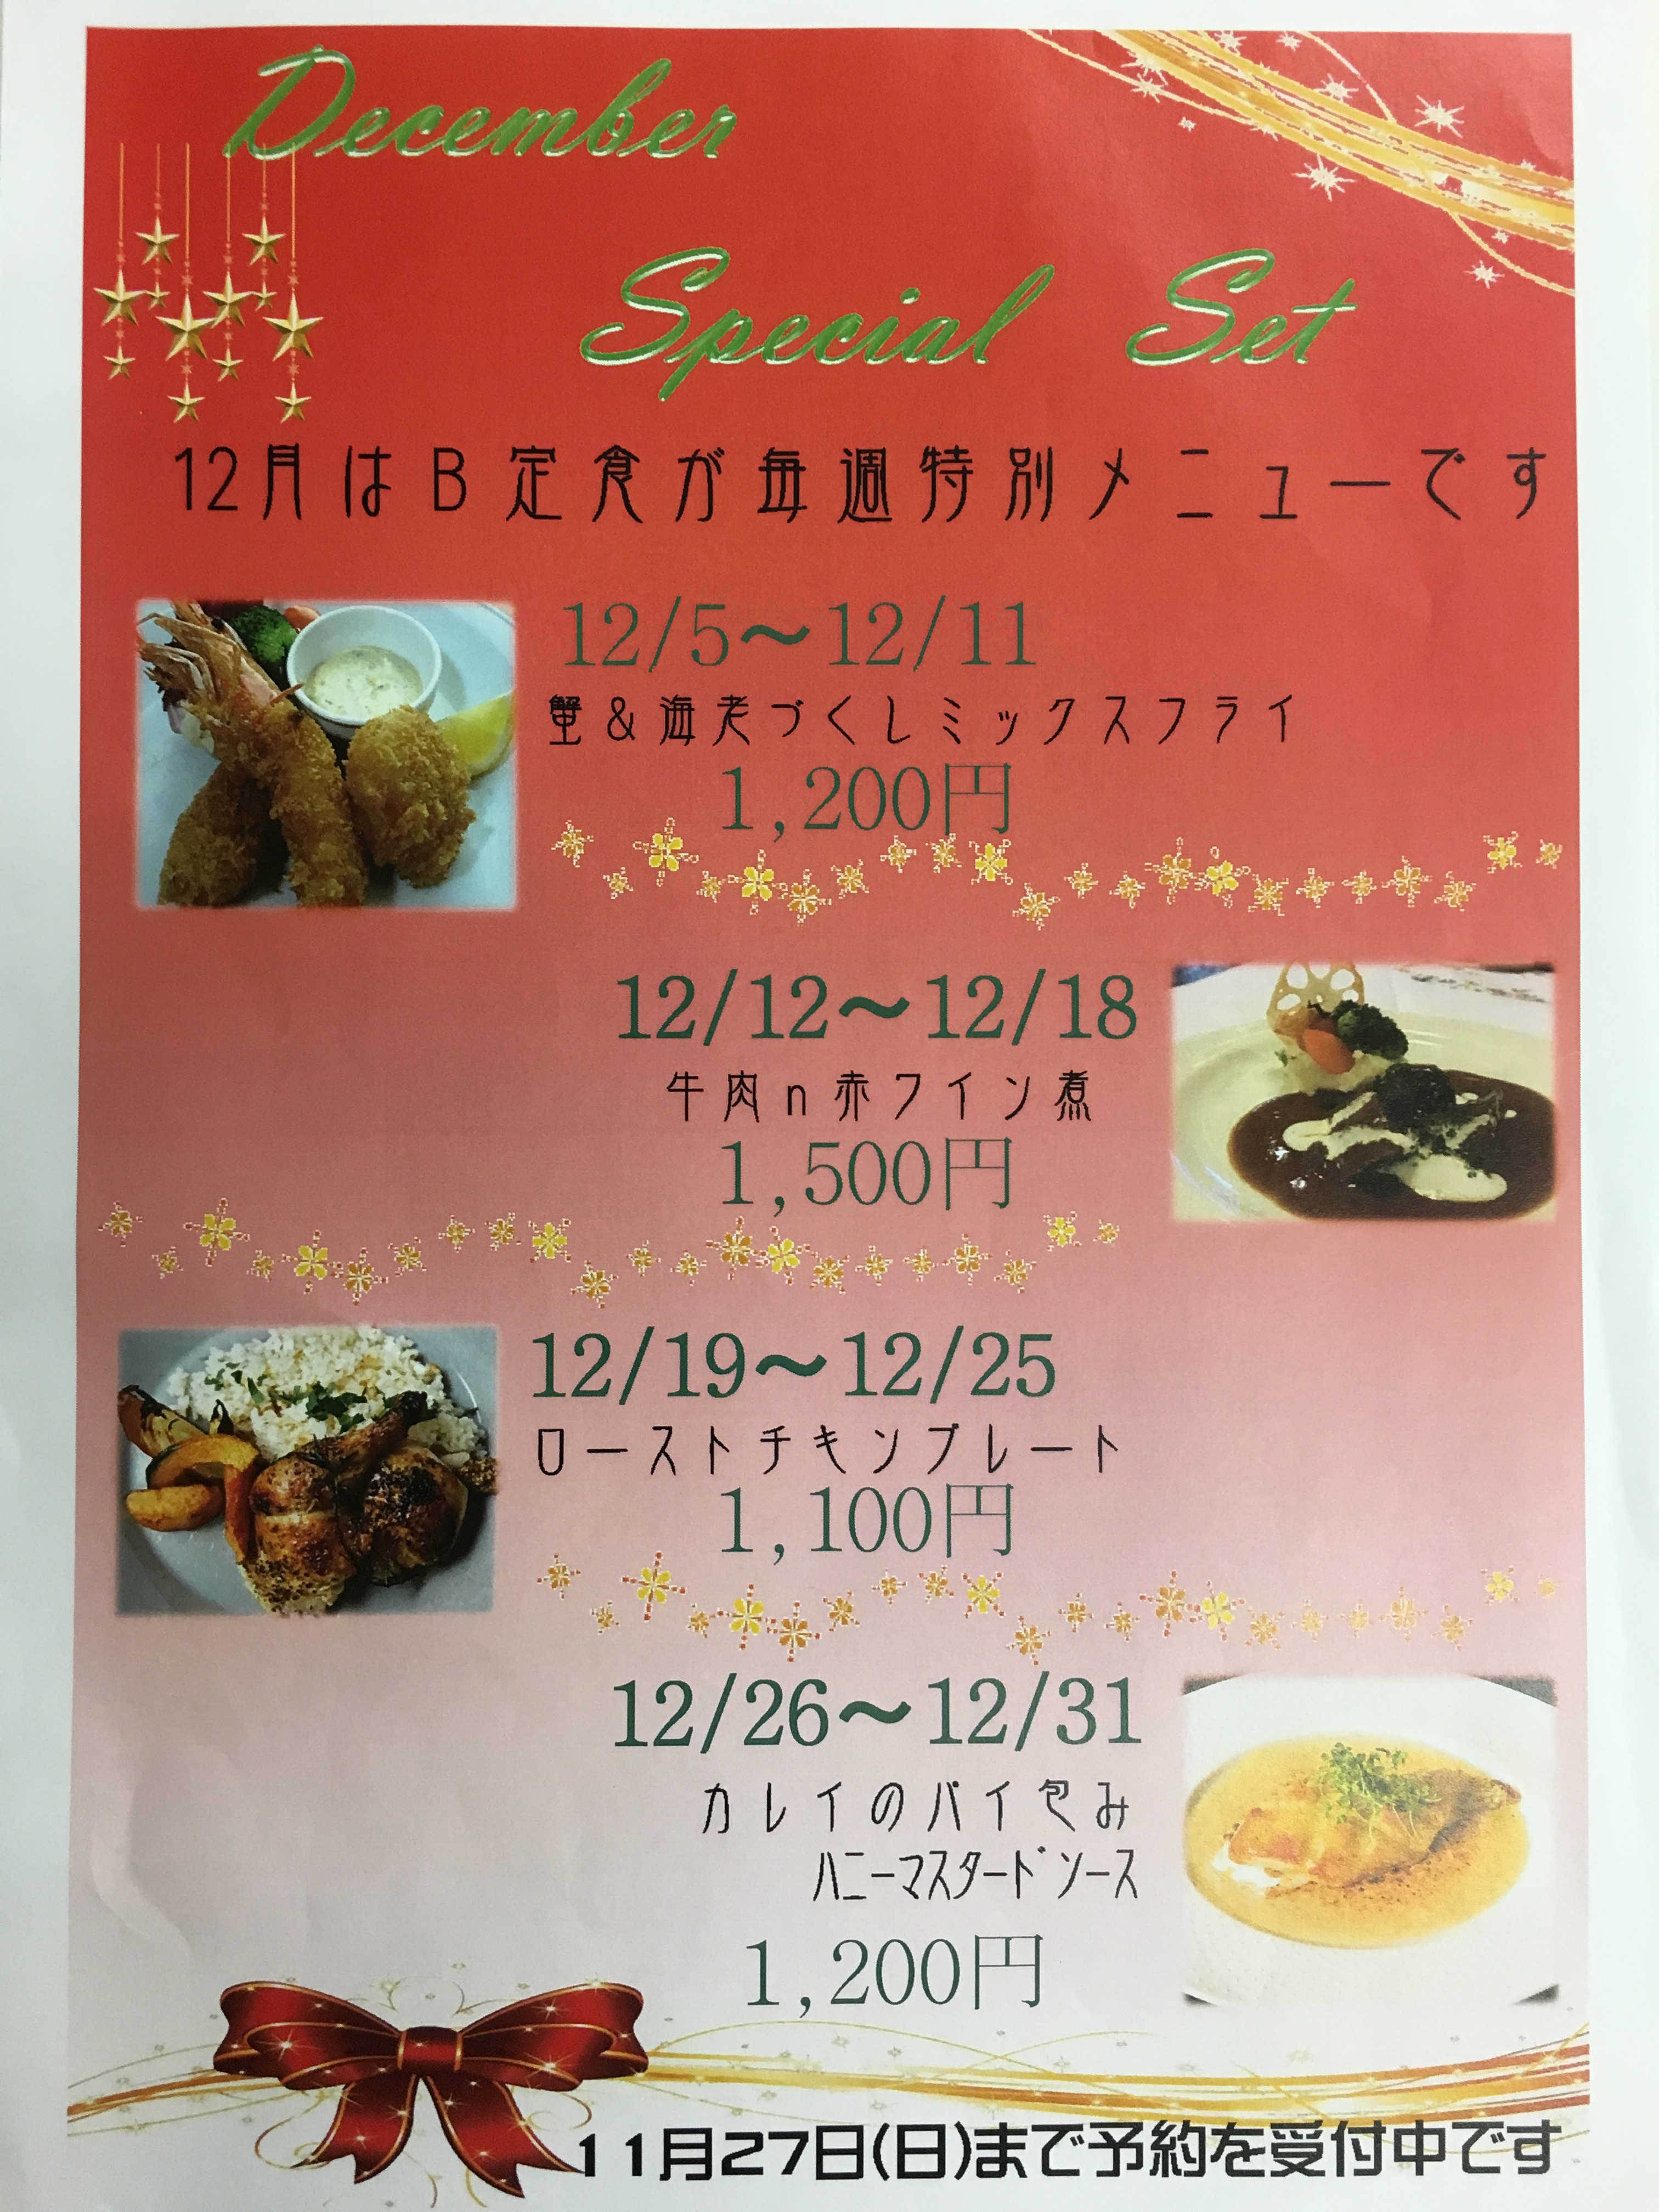 December
Special Set
12月はB定食が毎週特別メニューです
12/5～12/11
蟹&海老づくしミックスフライ
1,200円
12/12～12/18
牛肉n赤ワイン煮
1,500円
12/19～12/25
ローストチキンプレート
1,100円
12/26～12/31
カレイのパイ包み
ハニーマスタードソース
1,200円
11月27日(日)まで予約を受付中です